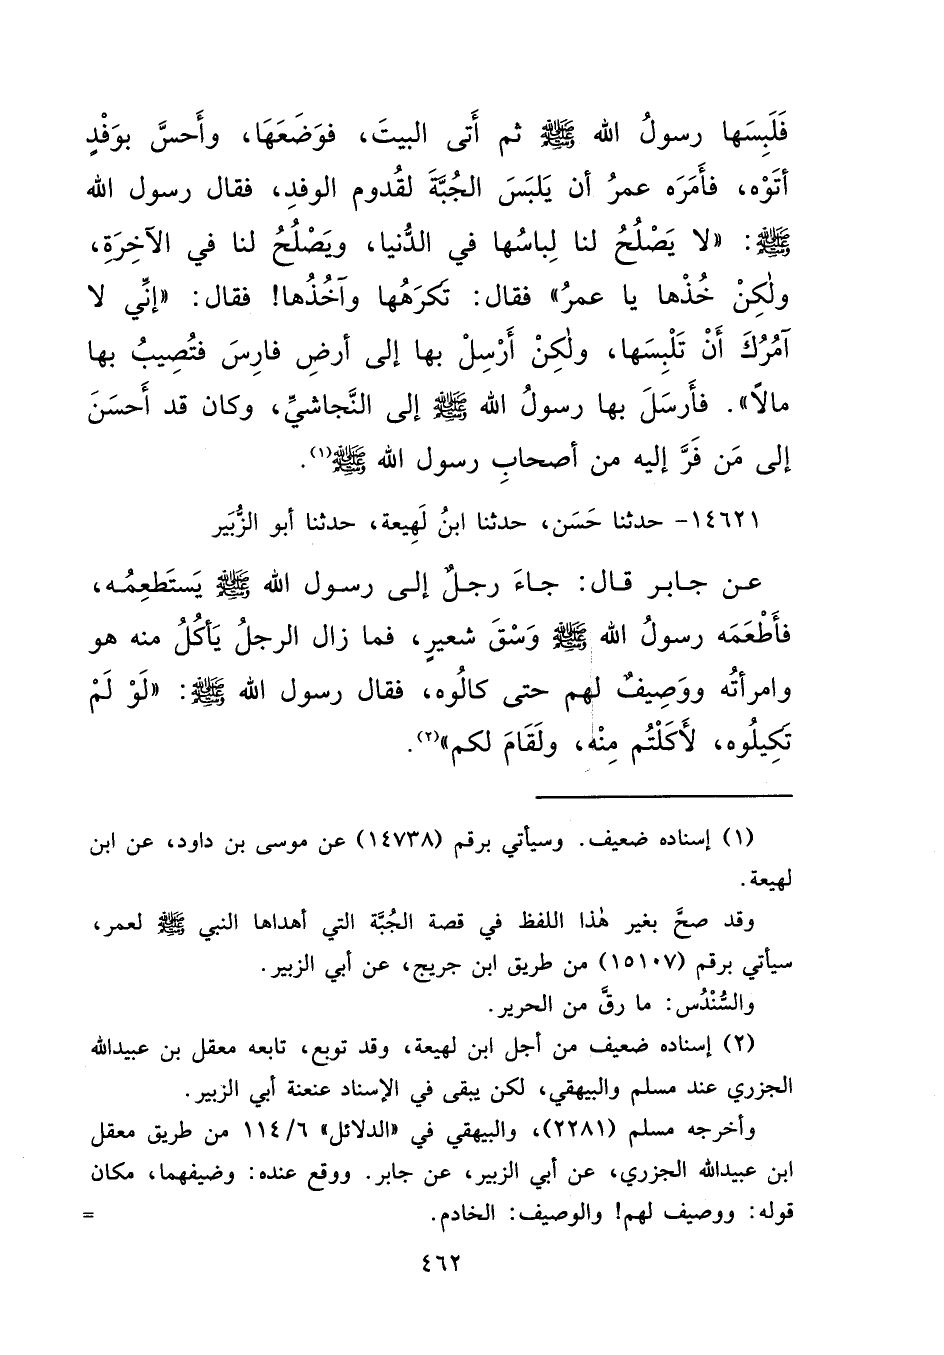 فَلَبِسَها رسولُ الله ﷺ ثم أَتى البيتَ، فوَضَعَهَا، وأَحسَّ بوَفْدٍ
أتَوْه، فأَمَرَه عمرُ أن يَلبَسَ الجُبَّةَ لقُدوم الوفدِ، فقال رسول الله
ﷺ: «لا يَصْلُحُ لنا لِباسُها في الدُّنيا، ويَصْلُحُ لنا في الآخِرَةِ،
ولٰكِنْ خُذْها يا عمرُ» فقال: تَكرَهُها وآخُذُها! فقال: «إنِّي لا
آمُرُكَ أَنْ تَلْبِسَها، ولٰكِنْ أَرْسِلْ بها إلى أرضِ فارِسَ فتُصِيبُ بها
مالاً». فأَرسَلَ بها رسولُ الله ﷺ إلى النَّجاشيِّ، وكان قد أَحسَنَ
إلى مَن فَرَّ إليه من أصحابِ رسول الله ﷺ(١).
١٤٦٢١- حدثنا حَسَن، حدثنا ابنُ لَهِيعة، حدثنا أبو الزُّبَير
عن جابر قال: جاءَ رجلٌ إلى رسول الله ﷺ يَستَطعِمُه،
فأَطْعَمَه رسولُ الله ﷺ وَسْقَ شعيرٍ، فما زال الرجلُ يَأكُلُ منه هو
وامرأتُه ووَصِيفٌ لهم حتى كالُوه، فقال رسول الله ﷺ: «لَوْ لَمْ
تَكِيلُوه، لأَكَلْتُم مِنْه، ولَقَامَ لكم»(٢).
(١) إسناده ضعيف. وسيأتي برقم (١٤٧٣٨) عن موسى بن داود، عن ابن
لهيعة.
وقد صحَّ بغير هٰذا اللفظ في قصة الجُبَّة التي أهداها النبي ﷺ لعمر،
سيأتي برقم (١٥١٠٧) من طريق ابن جريج، عن أبي الزبير.
والسُّنْدُس: ما رقَّ من الحرير.
(٢) إسناده ضعيف من أجل ابن لهيعة، وقد توبع، تابعه معقل بن عبيدالله
الجزري عند مسلم والبيهقي، لكن يبقى في الإسناد عنعنة أبي الزبير.
وأخرجه مسلم (٢٢٨١)، والبيهقي في «الدلائل» ٦/١١٤ من طريق معقل
ابن عبيدالله الجزري، عن أبي الزبير، عن جابر. ووقع عنده: وضيفهما، مكان
قوله: ووصيف لهم! والوصيف: الخادم. =
٤٦٢